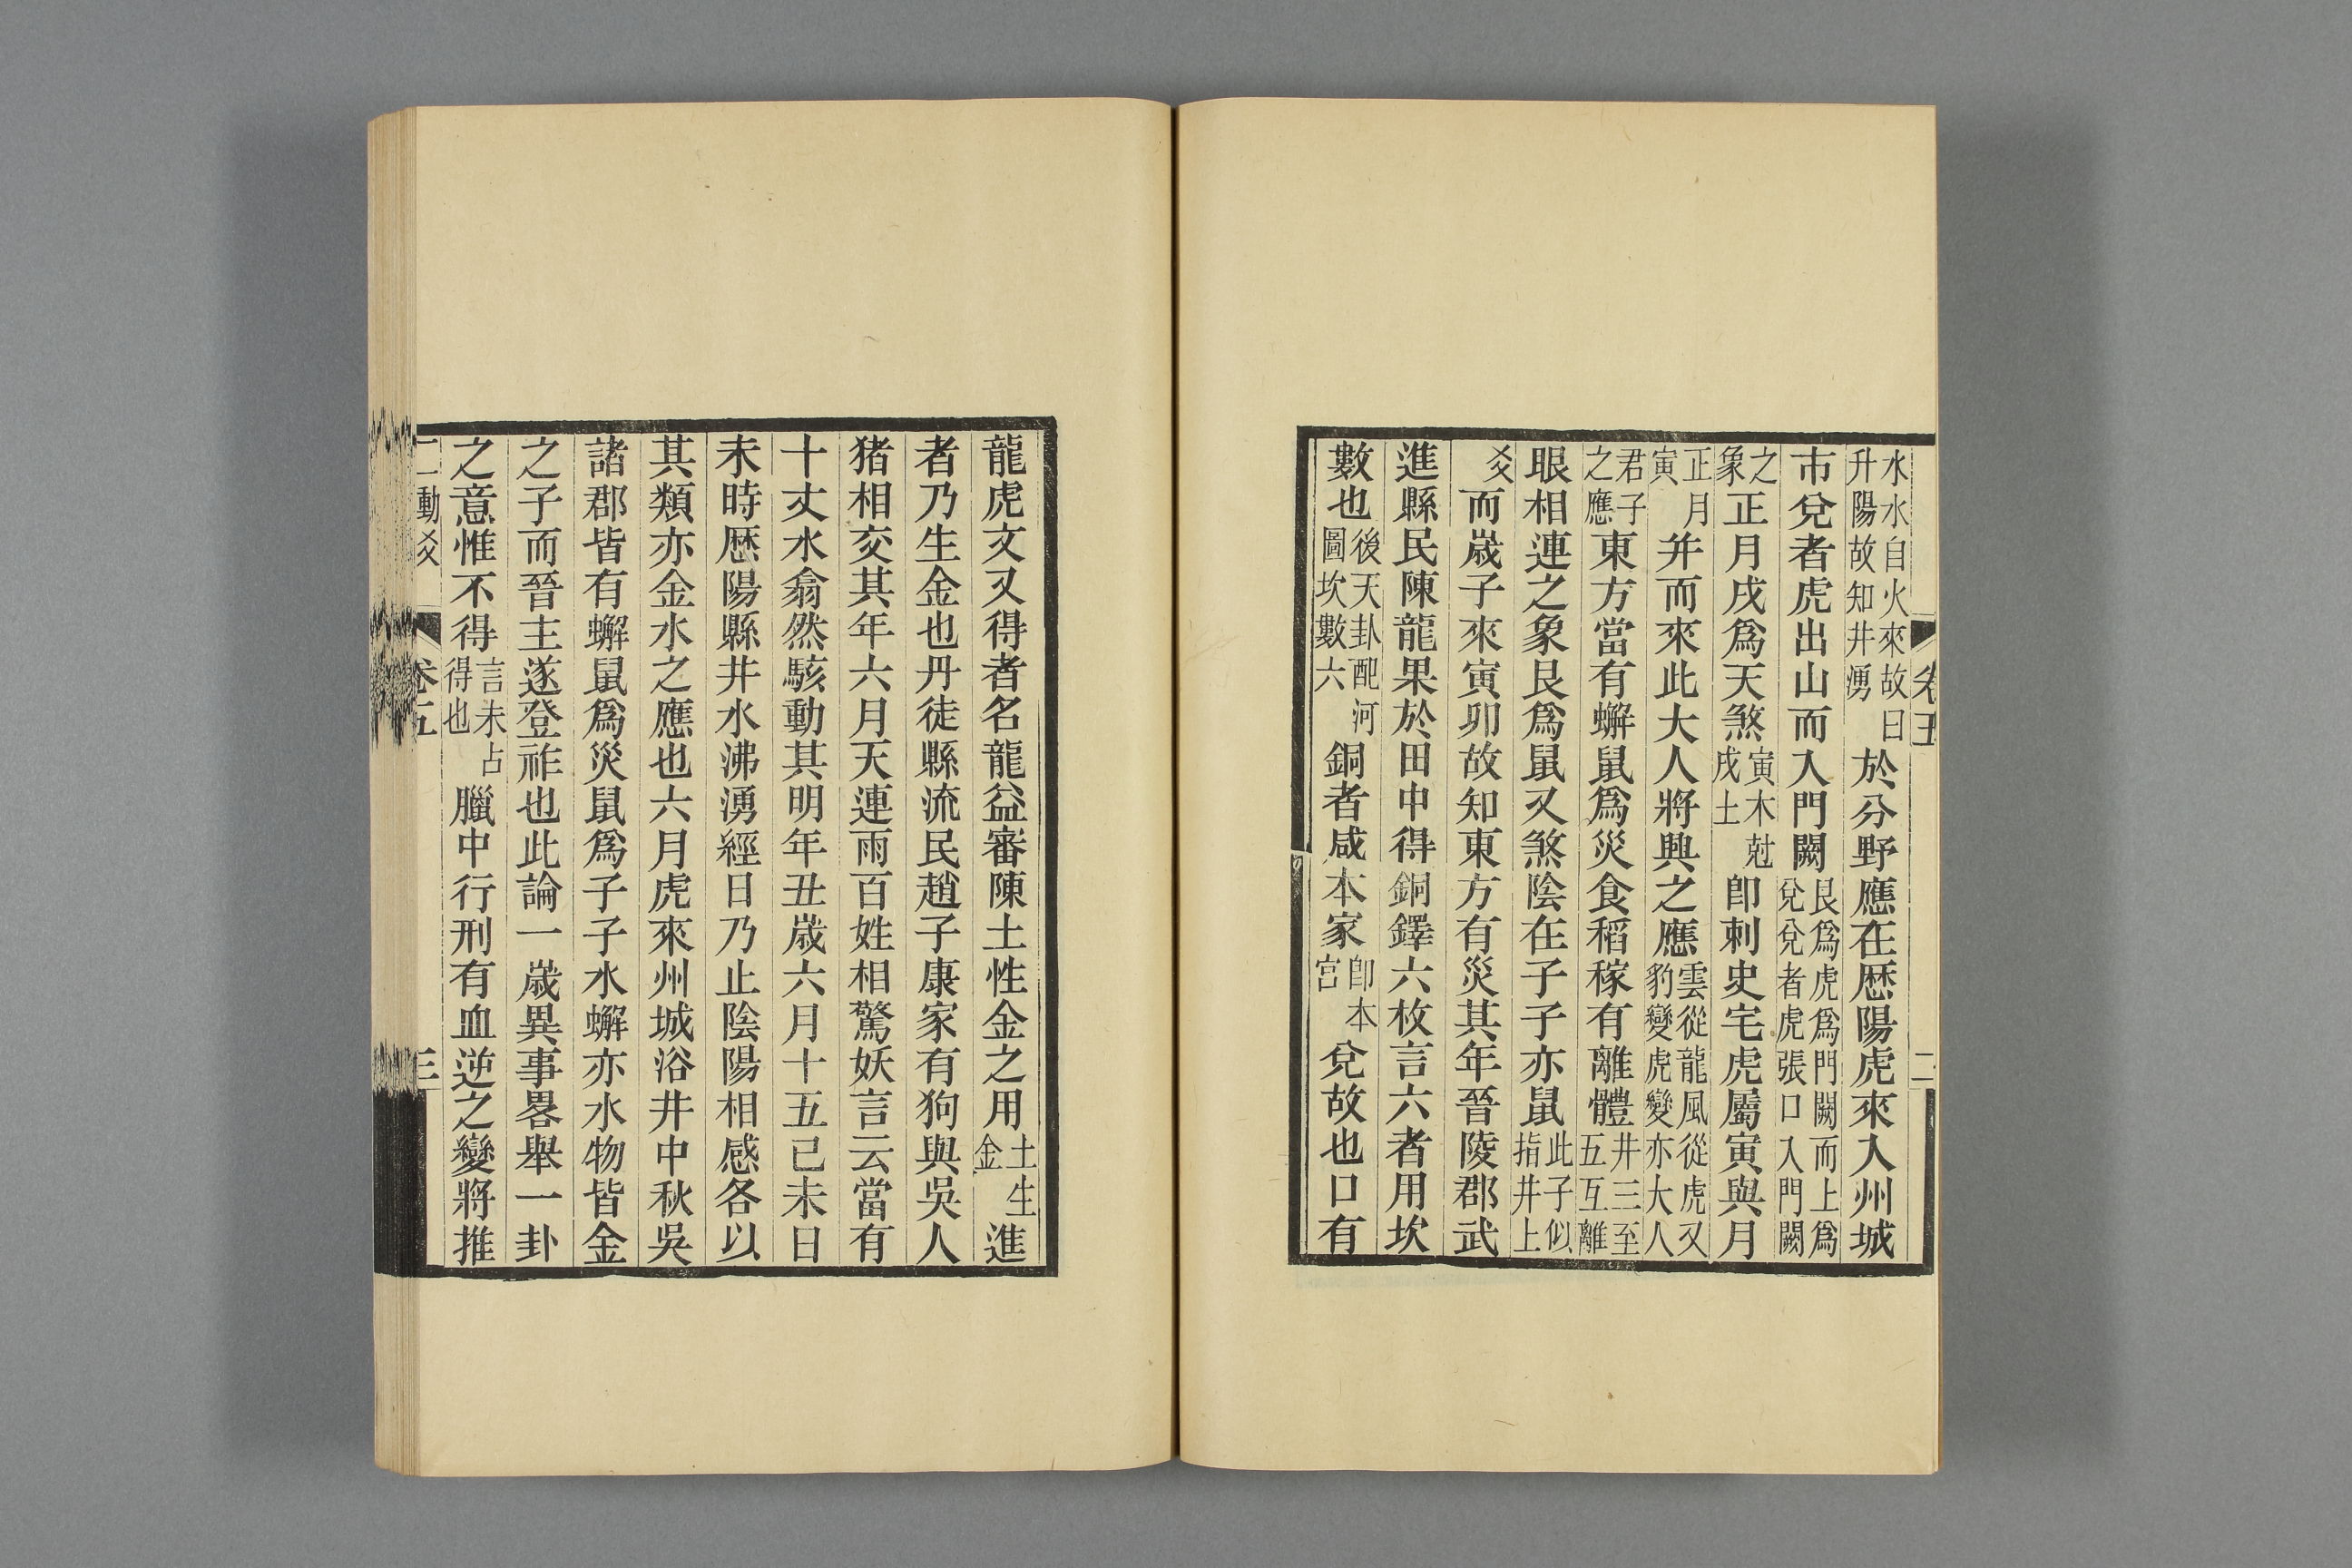 卷五
二
水水自火來故曰升陽故知井湧於分野應在歴陽虎來入州城
市兌者虎出山而入門闕艮爲虎爲門闕而上爲兌兌者虎張口入門闕
之象正月戌爲天煞寅木尅戌土卽刺史宅虎屬寅與月
正月寅并而來此大人將興之應雲從龍風從虎又豹變虎變亦大人
君子之應東方當有蠏鼠爲災食稻稼有離體井三至五互離
眼相連之象艮爲鼠又煞陰在子子亦鼠此子似指井上
爻而歲子來寅卯故知東方有災其年晉陵郡武
進縣民陳龍果於田中得銅鐸六枚言六者用坎
數也後天卦配河圖坎數六銅者咸本家卽本宮兌故也口有
龍虎文又得者名龍益審陳土性金之用土生金進
者乃生金也丹徒縣流民趙子康家有狗與吳人
猪相交其年六月天連雨百姓相驚妖言云當有
十丈水翕然駭動其明年丑歲六月十五己未日
未時歴陽縣井水沸湧經日乃止陰陽相感各以
其類亦金水之應也六月虎來州城浴井中秋吳
諸郡皆有蠏鼠爲災鼠爲子子水蠏亦水物皆金
之子而晉主遂登祚也此論一歲異事畧舉一卦
之意惟不得言未占得也臘中行刑有血逆之變將推
二動爻
卷五
三